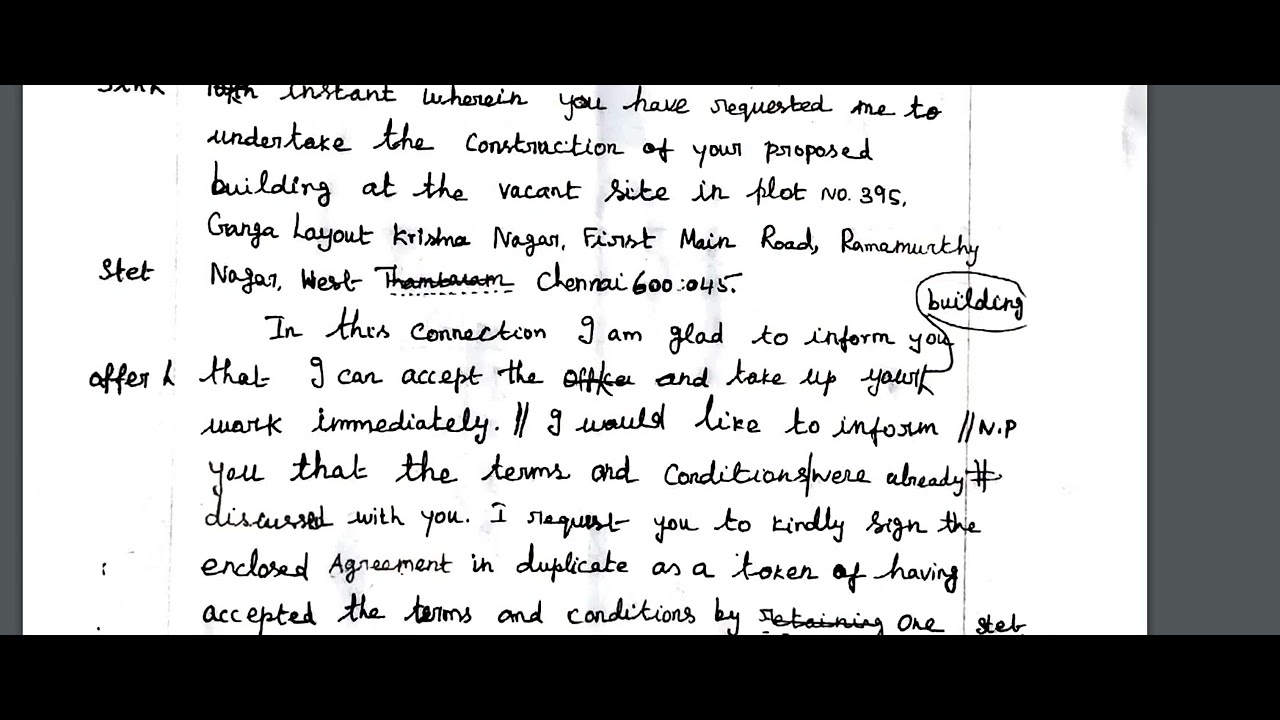 instant wherein you have requested me to
undertake the construction of your proposed
building at the vacant site in plot No. 395,
Ganga Layout Krishna Nagar, First Main Road, Ramamurthy
Stet Nagar, West Thambaram Chennai 600:045.
building
In this connection I am glad to inform you
offer that I can accept the office and take up your
work immediately. // I would like to inform // N.P
you that the terms and conditions were already #
discussed with you. I request you to kindly sign the
enclosed Agreement in duplicate as a token of having
accepted the terms and conditions by retaining one stet